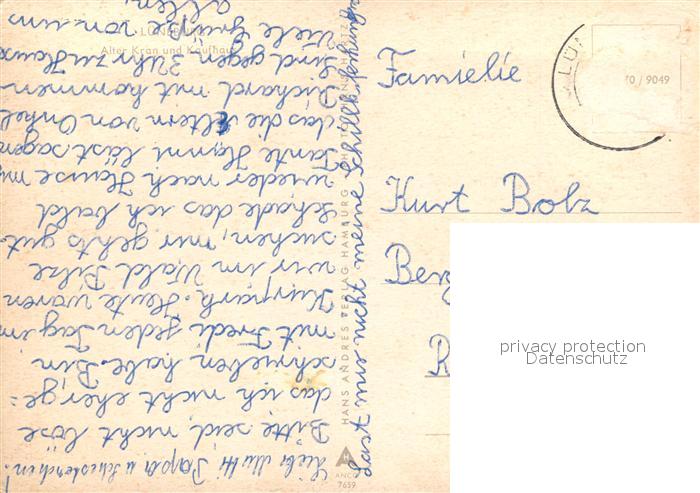 Liebe Mutti Papa u Schwesterchen!
Bitte seid nicht böse
das ich nicht eher ge=
schrieben habe. Bin
mit Fredi jeden Tag im
Kurpark. Heute waren
wir im Wald Pilze
suchen, mir gehts gut
Schade das ich bald
wieder nach Hause muß
Tante Hanni läst sagen
das die Eltern von Onkel
Richard mit kommen
Sind gegen 3 Uhr zu Hause
Viele Grüße von uns
allen,
Last mir nicht meine Schillk
Famielie
Kurt Bolz
LÜNEBURG
Alter Kran und Kaufhaus
HANS ANDRES VERLAG HAMBURG
ANCO
7659
LÜN
70 / 9049
privacy protection
Datenschutz